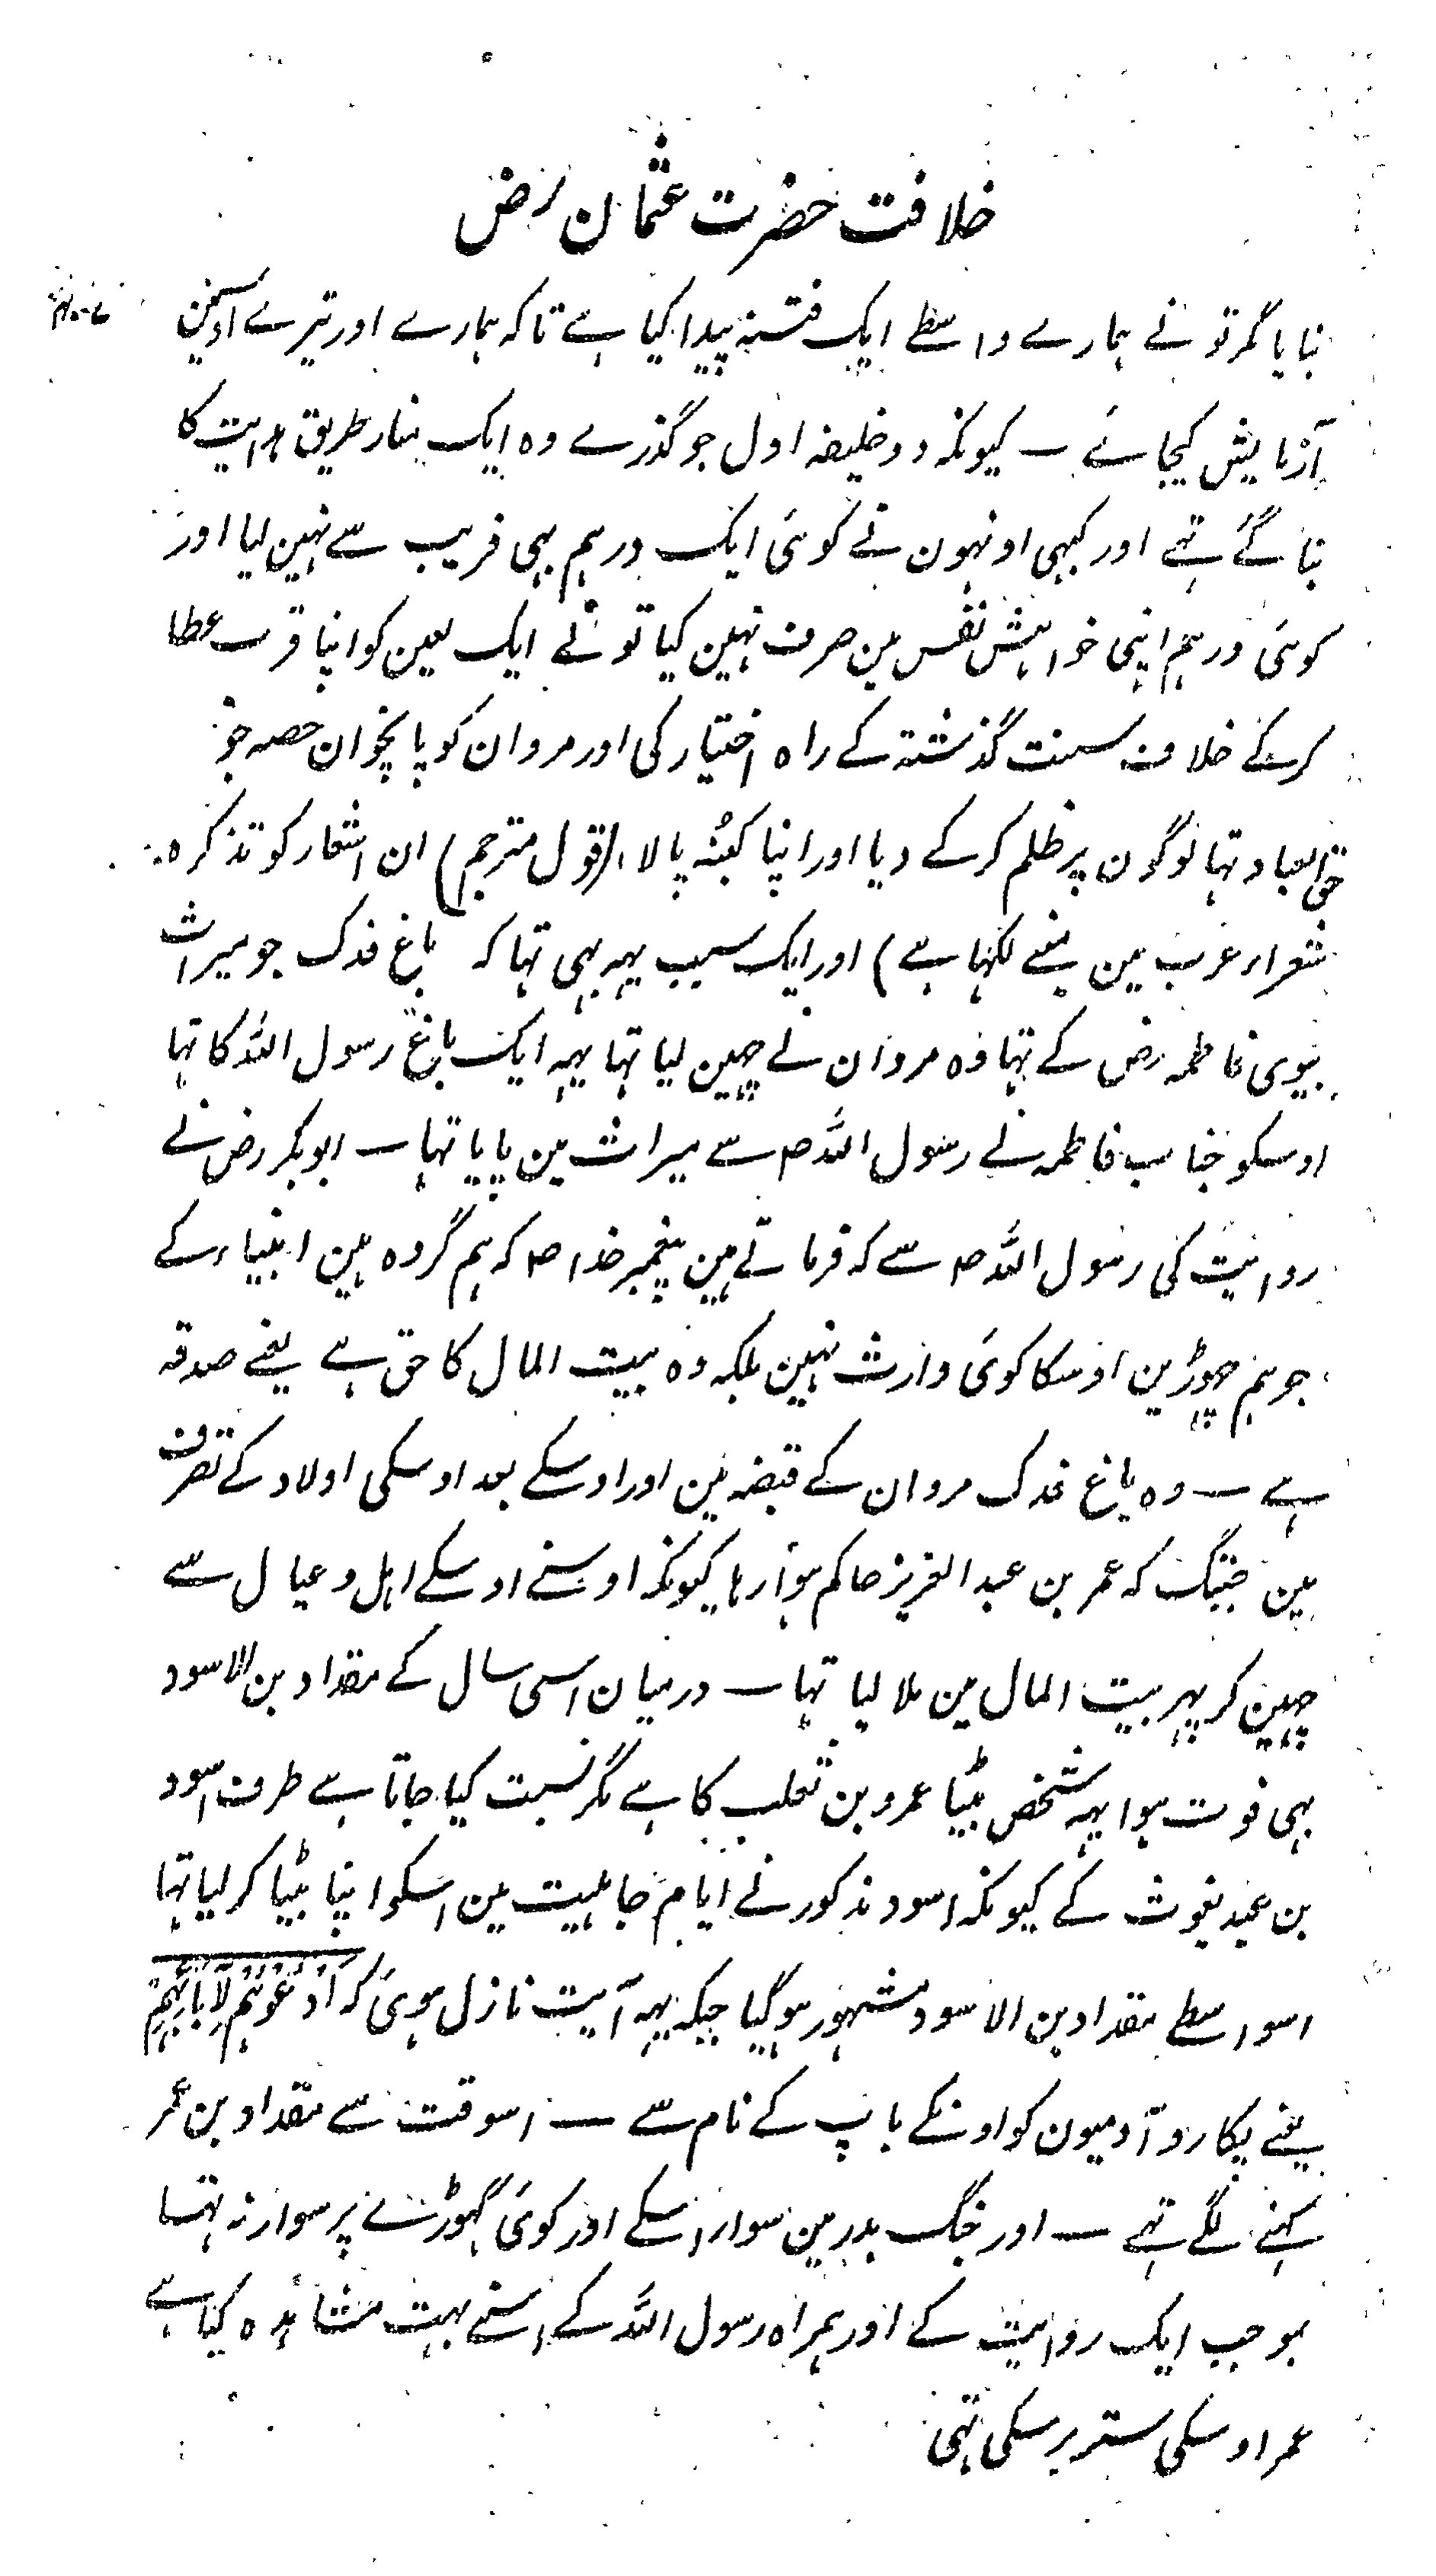 خلافت حضرت عثمان رض
بنایا مگر تو نے ہمارے واسطے ایک فتنہ پیدا کیا ہے تاکہ ہمارے اور تیرے
آزمایش کیجائے ــ کیونکہ دو خلیفہ اول جو گذرے وہ ایک منار طریق ہدایت کا
بنا گئے تہے اور کبہی اونہون نے کوئی ایک درہم بہی فریب سے نہین لیا اور
کوئی درہم اپنی خواہش نفس مین صرف نہین کیا تو نے ایک لعین کو اپنا قرب عطا
کرکے خلاف سنت گذشتہ کے راہ اختیار کی اور مروان کو پانچوان حصہ جو
حق العباد تہا لوگون پر ظلم کرکے دیا اور اپنا کنبہ پالا (قول مترجم) ان اشعار کو تذکرہ
شعراء عرب مین مینے لکہا ہے) اور ایک سبب یہہ بہی تہا کہ باغ فدک جو میراث
بیوی فاطمہ رض کے تہا وہ مروان نے چہین لیا تہا یہہ ایک باغ رسول اللہ کا تہا
اوسکو جناب فاطمہ نے رسول اللہ ص سے میراث مین پایا تہا ــ ابوبکر رض نے
روایت کی رسول اللہ ص سے کہ فرماتے ہین پیغمبر خدا ص کہ ہم گروہ ہین انبیاء کے
جو ہم چہوڑین اوسکا کوئی وارث نہین بلکہ وہ بیت المال کا حق ہے یعنے صدقہ
ہے ــ وہ باغ فدک مروان کے قبضہ مین اور اوسکے بعد اوسکی اولاد کے تصرف
مین جبتک کہ عمر بن عبد العزیز حاکم ہوا رہا کیونکہ اوسنے اوسکے اہل و عیال سے
چہین کر پہر بیت المال مین ملا لیا تہا ــ درمیان اسی سال کے مقداد بن الاسود
بہی فوت ہوا یہہ شخص بیٹا عمرو بن ثعلب کا ہے مگر نسبت کیا جاتا ہے طرف اسود
بن عبد یغوث کے کیونکہ اسود مذکور نے ایام جاہلیت مین اسکو اپنا بیٹا کر لیا تہا
اسواسطے مقداد بن الاسود مشہور ہوگیا جبکہ یہہ آیت نازل ہوئی کہ اُدْعُوہُمْ لِاٰبَائِہِمْ
یعنے پکارو آدمیون کو اونکے باپ کے نام سے ــ اسوقت سے مقداد بن عمر
کہنے لگے تہے ــ اور جنگ بدر مین سوار اسکے اور کوئی گہوڑے پر سوار نہ تہا
بموجب ایک روایت کے اور ہمراہ رسول اللہ کے اسنے بہت مشاہدہ کیا ہے
عمر اوسکی ستر برسکی تہی